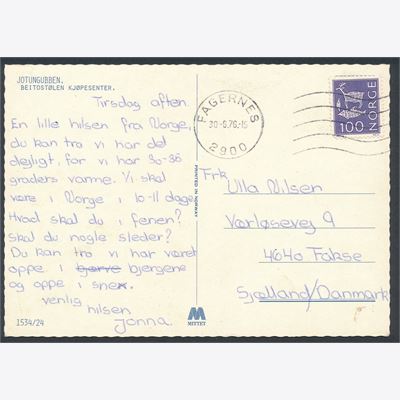 JOTUNGUBBEN.
BEITOSTØLEN KJØPESENTER.
Tirsdag aften.
En lille hilsen fra Norge,
du kan tro vi har det
dejligt, for vi har 30-36
graders varme. Vi skal
være i Norge i 10-11 dage
Hvad skal du i ferien?
skal du nogle steder?
Du kan tro vi har været
oppe i bjerge bjergene
og oppe i sne.
venlig
hilsen
Jonna.
1534/24
PRINTED IN NORWAY
M
MITTET
FAGERNES
30-6.76.-15
2900
100 NORGE
Frk
Ulla Nilsen
Vorløsevej 9
4640 Fakse
Sjælland/Danmark